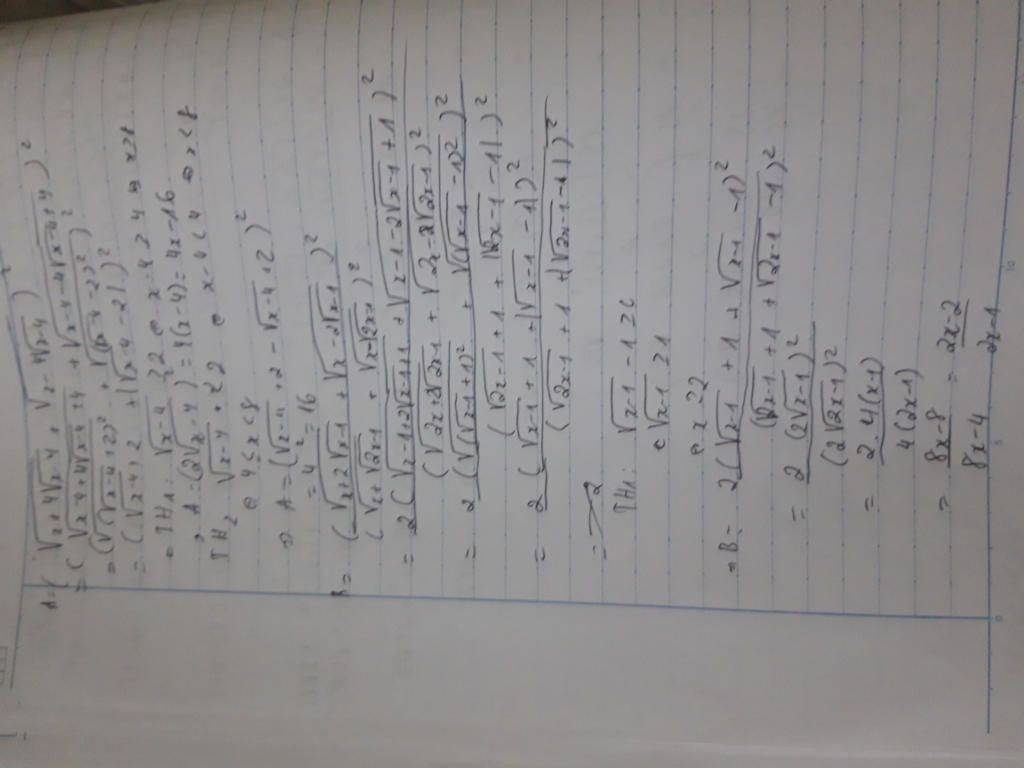 A = (√x+4√x-4 + √x-4√x-4)²
= (√x-4+4√x-4+4 + √x-4-4√x-4+4)²
= (√(√x-4+2)² + √(√x-4-2)²)²
= (√x-4+2 + |√x-4-2|)²
TH1: √x-4 ≥2 x-4 ≥ 4 x≥8
A = (2√x-4) = 4(x-4) = 4x-16
TH2 √x-4 <2 x-4<4 x<8
4<x<8
⇒ A = (√x-4+2-√x-4+2)²
= 4² = 16
B = (√x+2√x-1 + √x-2√x-1)²
(√x+√2x-1 + √x-√2x-1)²
= 2(√x-1+2√x-1+1 + √x-1-2√x-1+1)²
(√2x+2√2x-1 + √2x-2√2x-1)²
= 2(√(√x-1+1)² + √(√x-1-1)²)²
(√2x-1+1 + |√2x-1-1|)²
= 2(√x-1+1+|√x-1-1|)²
(√2x-1+1+|√2x-1-1|)²
TH1: √x-1-1≥0
√x-1≥1
x≥2
⇒ B = 2(√x-1+1+√x-1-1)²
(√2x-1+1+√2x-1-1)²
= 2(2√x-1)²
(2√2x-1)²
= 2.4(x-1)
4(2x-1)
= 8x-8 = 2x-2
8x-4 2x-1